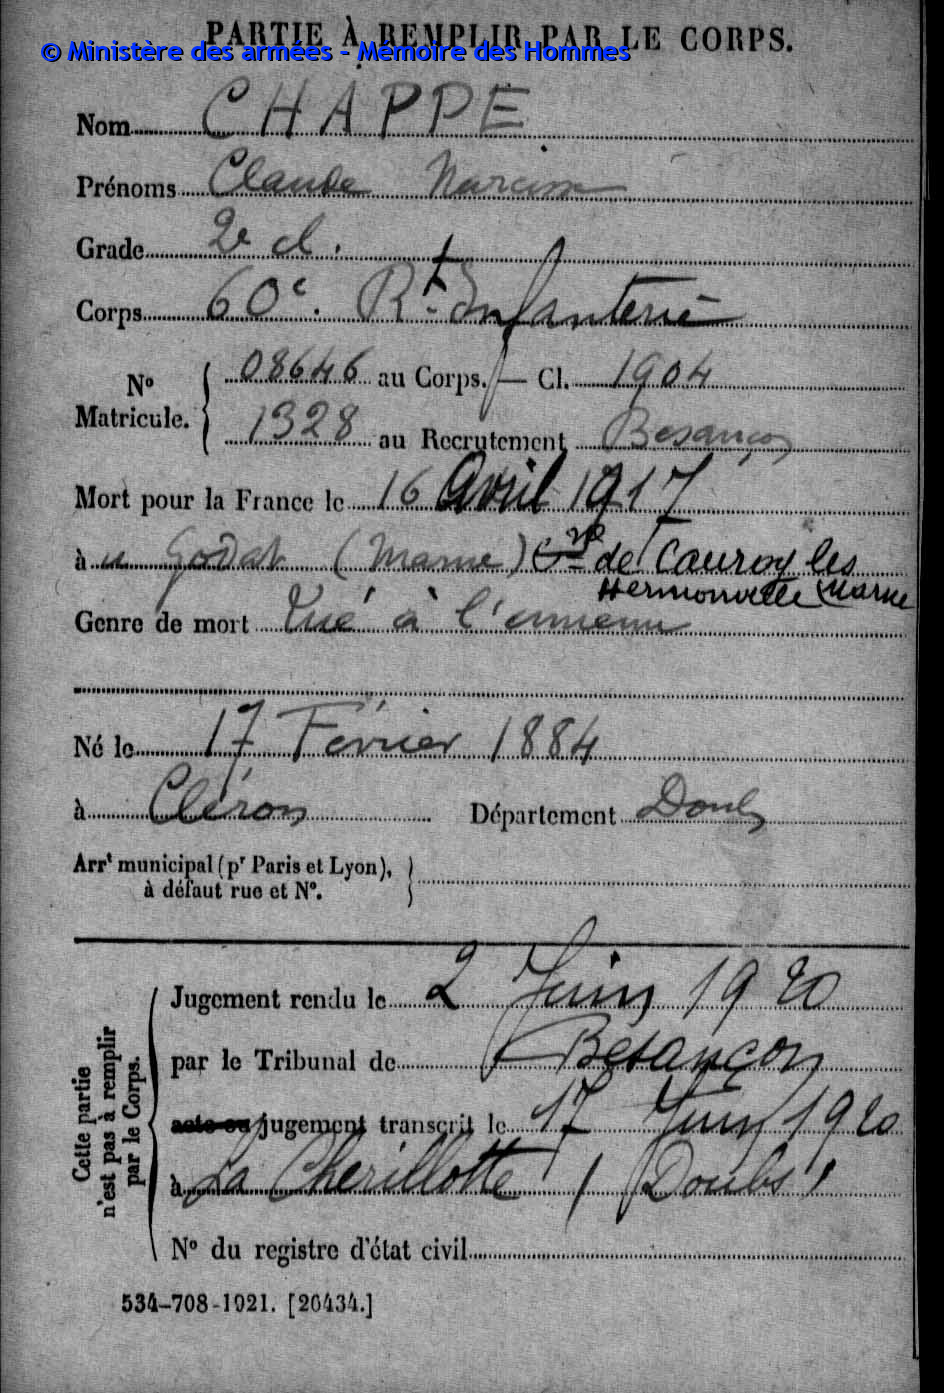 PARTIE À REMPLIR PAR LE CORPS.
© Ministère des armées - Mémoire des Hommes
Nom CHAPPE
Prénoms Claude Narcisse
Grade 2e cl.
Corps 60e. Rt. Infanterie
No Matricule. 08646 au Corps. — Cl. 1904
1328 au Recrutement Besançon
Mort pour la France le 16 Avril 1917
à Godat (Marne) Cne de Cauroy les
Hermonville Marne
Genre de mort Tué à l'ennemi
Né le 17 Février 1884
à Cléron Département Doubs
Arrt municipal (pr Paris et Lyon),
à défaut rue et No.
Cette partie n'est pas à remplir par le Corps.
Jugement rendu le 2 Juin 1920
par le Tribunal de Besançon
acte ou jugement transcrit le 17 Juin 1920
à La Chevillotte (Doubs)
No du registre d'état civil
534-708-1921. [26434.]